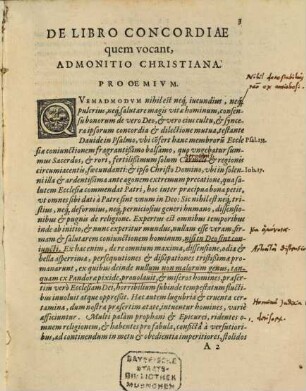 3
DE LIBRO CONCORDIAE
quem vocant,
ADMONITIO CHRISTIANA.
PROOEMIVM.
QVEMADMODVM nihil est neq; iucundius, neq;
pulcrius, neq; salutare magis vita hominum, consen-
su bonorum de vero Deo, & vero eius cultu, & synce-
ra ipsorum concordia & dilectione mutua, testante
Dauide in Psalmo, vbi confert hanc membrorū Eccle
siæ coniunctionem fragrantissimo balsamo, quo vngebatur sum-
mus Sacerdos, & rori, fertilissimum solum & regionis
circumiacentis, fœcundanti: & ipse Christo Domino, vbi in suis
mis illa & ardentissima ante agonem extremum precatione, quasa-
lutem Ecclesiæ commendat Patri, hoc inter præcipua bona petit,
vt omnes sibi dati à Patre sint vnum in Deo: Sic nihil est neq;
tristius, neq; deformius, neq; perniciosius generi humano, dissensio-
nibus & pugnis de religione. Expertæ est omnibus temporibus
inde ab initio, & nunc experitur mundus, nullam esse veram fir-
mam & salutarem coniunctionem hominum, nisi in Deo sint con-
iuncti. Ex hac enim, de re omnium maxima, dissensione, odia &
bella asperrima, persequutiones & dissipationes tristissimæ pro-
manarunt, ex quibus deinde nullum non malorum genus, tan-
quam ex Pandoræ pixide, prouolauit, & miseros homines, præser-
tim verò Ecclesiam Dei, horribilium subinde tempestatum flucti-
bus inuoluit atque oppressit. Hæc autem lugubria & cruenta cer-
tamina, dum nostra præsertim ætate, intuentur homines, variè
afficiuntur. Multi palàm prophani & Epicurei, ridentes o-
mnem religionem, & habentes pro fabulis, conficta à versutiori-
bus, ad continendum in metu & obedientia imperitiores, stolidos
A 2
Psal. 133.
Ioh. 17.
BAYERISCHE
STAATS-
BIBLIOTHEK
MUENCHEN